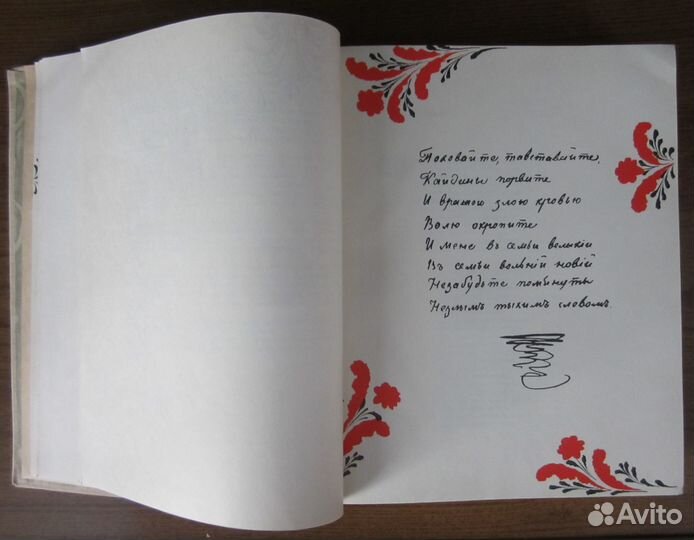 Поховайте, тавставайте,
Кайданы порвите
И вражою злою кровью
Волю окропите
И мене въ семьи велыкій
Въ семьи вольній новій
Незабудьте помънуты
Незлымъ тыхимъ словомъ.
Avito